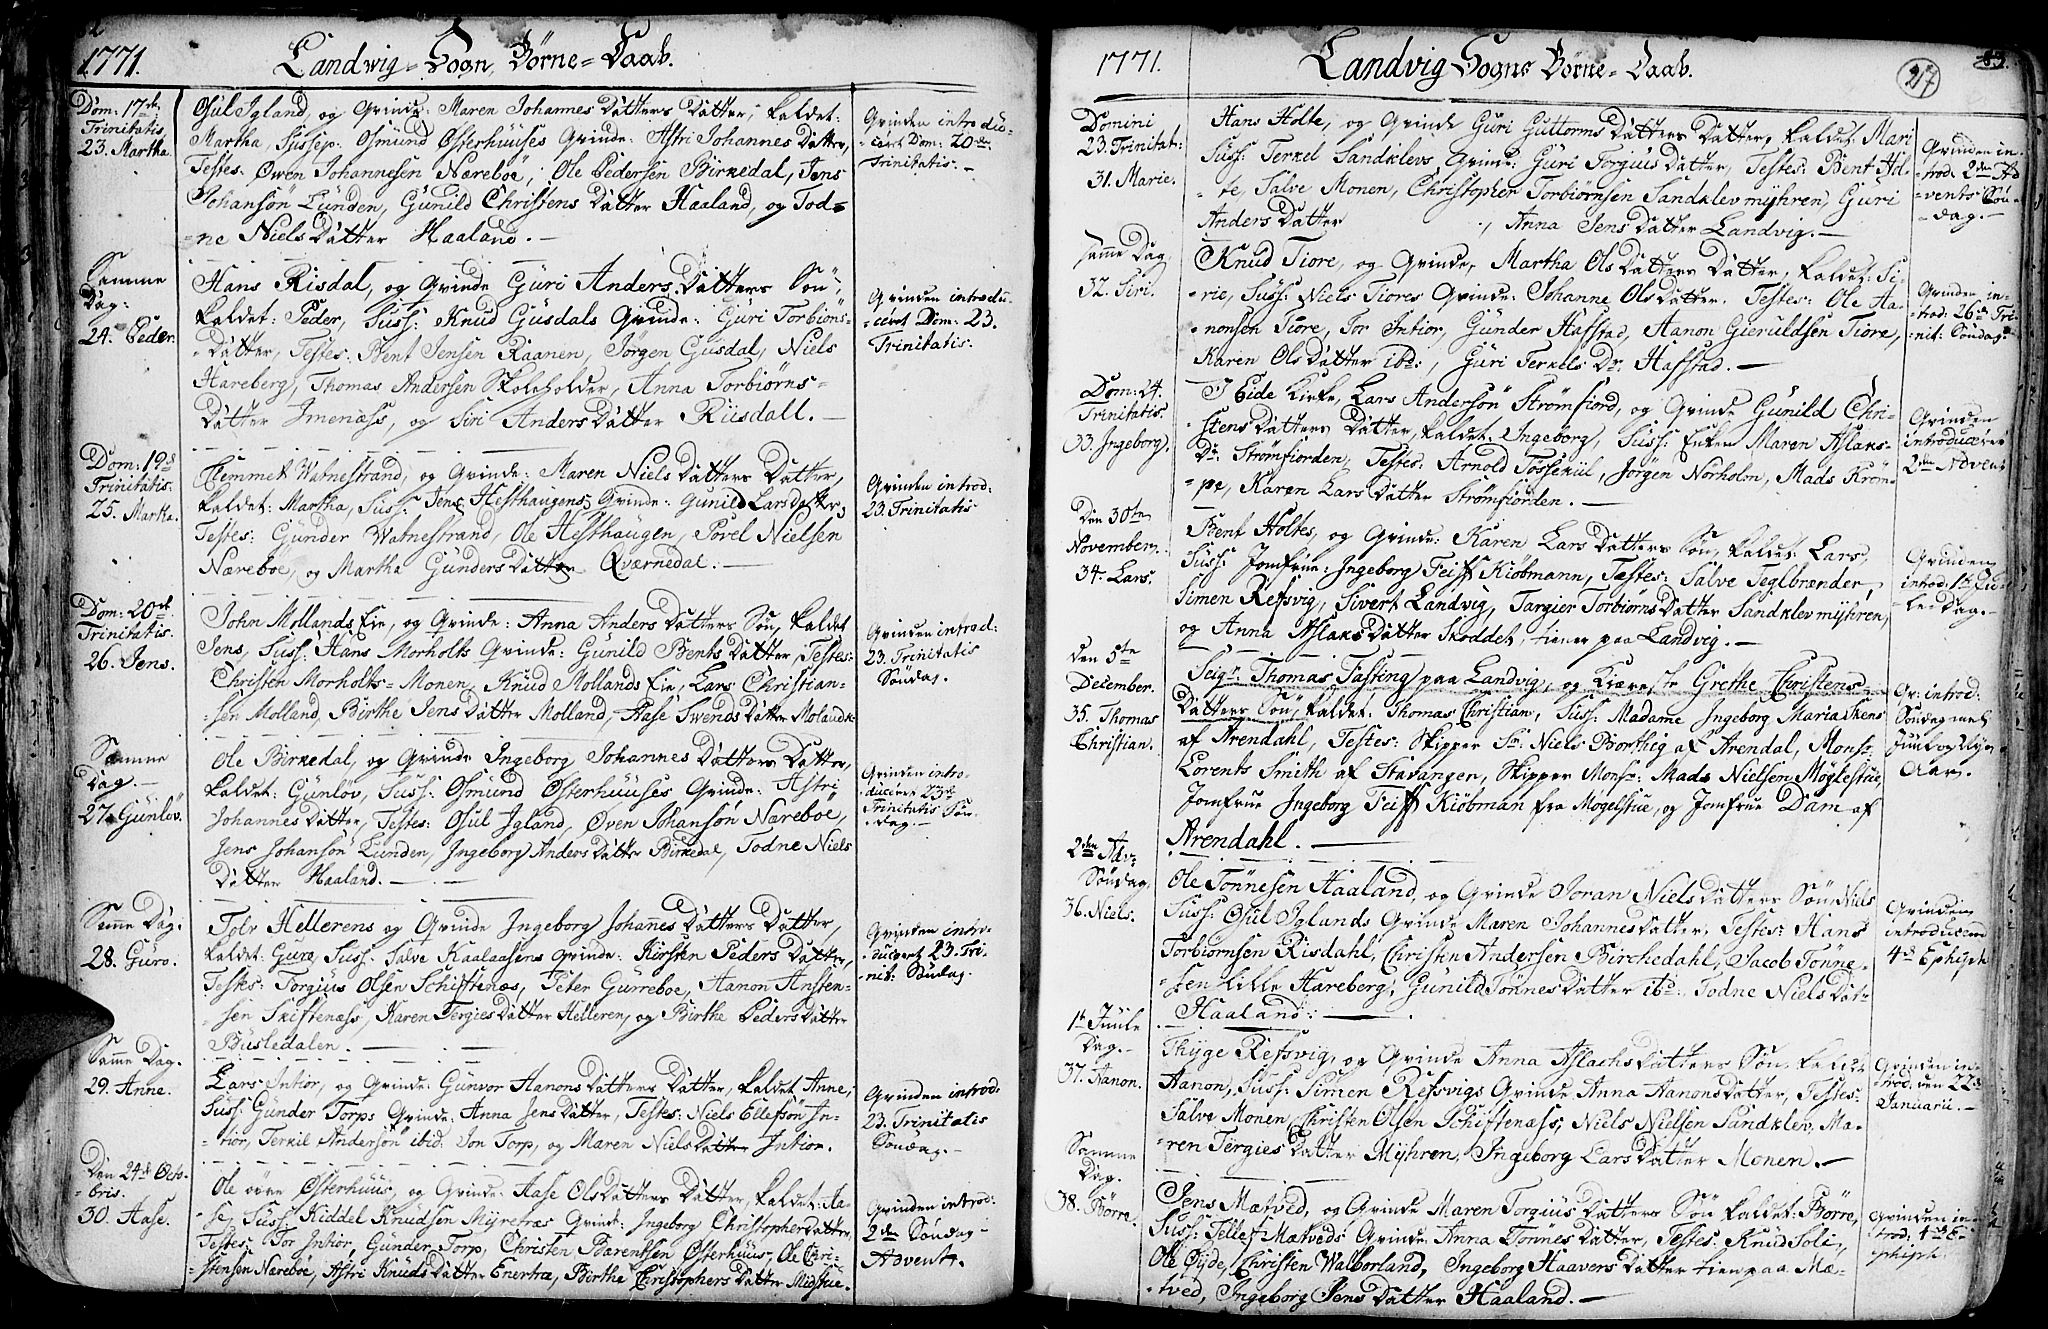 82
1771. Landwig-Sogn, Börne-Daab.
Dom: 17de
Trinitatis
23. Martha.
Osul Igland, og Qvinde: Maren Johannes Datters Datter, kaldet:
Martha, Suscep: Osmund Osterhuuses Qvinde: Astri Johannes Datter,
Testes: Owen Johannesen Næreböe, Ole Pedersen Birkedal, Jens
Johansön Lunden, Gunild Christens Datter Haaland, og Tod-
-ne Niels Datter Haaland.-
Qvinden introdu-
-ceret Dom: 20de
Trinitatis.-
Samme
Dag:
24. Peder.
Hans Risdal, og Qvinde Guri Anders Datters Sön,
kaldet: Peder, Suss: Knud Gusdals Qvinde: Guri Torbiöns-
-Datter, Testes: Bent Jensen Raanen, Jörgen Gusdal, Niels
Hareberg, Thomas Andersen Skoleholder, Anna Torbiörns-
Datter Imenæss, og Siri Anders Datter Riisdall.-
Qvinden introdu-
-ceret Dom: 23.
Trinitatis.
Dom: 19de
Trinitatis.
25. Martha.
Clemmet Watnestrand, og Qvinde: Maren Niels Datters Datter,
kaldet: Martha, Suss: Jens Hesthaugens Qvinde: Gunild Larsdatter,
Testes: Gunder Watnestrand, Ole Hesthaugen, Povel Nielsen
Næreböe, og Martha Gunders Datter Qværnedal.-
Qvinden introd:
23. Trinitatis
Dom: 20de
Trinitatis.
26. Jens.
John Mollands Eie, og Qvinde: Anna Anders Datters Sön, kaldet
Jens, Suss: Hans Morholts Qvinde: Gunild Bents Datter, Testes:
Christen Morholts-Monen, Knud Mollands Eie, Lars Christian-
-sen Molland, Birthe Jens Datter Molland, Aase Swends Datter Molands
Qvinden introd:
23. Trinitatis
Söndag.
Samme
Dag.-
27. Gunlöv.
Ole Birkedal, og Qvinde Ingeborg Johannes Datters Datter,
kaldet: Gunlöv, Suss: Osmund Osterhuuses Qvinde: Astri
Johannes Datter, Testes: Osul Igland, Oven Johansön Næreboe,
Jens Johansön Lunden, Ingeborg Anders Datter Birkedal, Todne Niels
Datter Haaland.-
Qvinden intro-
duceret 23de
Trinitatis Sön-
-dag.-
Samme Dag.
28. Guro.
Tolv Hellerens og Qvinde Ingeborg Johannes Datters Datter,
kaldet: Guro, Suss: Salve Kaalaasens Qvinde: Kirsten Peders Datter,
Testes: Torgius Olsen Schiftenæs, Peter Gurreboe, Aanon Ansten-
-sen Skiftenæss, Karen Tergies Datter Helleren, og Birthe Peders Datter
Busledalen.-
Qvinden intro-
-duceret 23. Tri-
nit: Söndag.
Samme Dag.
29. Anne.
Lars Intior, og Qvinde: Gunvor Aanons Datters Datter, kaldet Anne,
Suss: Gunder Torps Qvinde: Anna Jens Datter, Testes: Niels Ellefsön In-
-tior, Terkil Andersön ibid. Jon Torp, og Maren Niels Datter Intior.
Qvinden introd:
23. Trinitatis
Söndag.-
Den 24de Octo-
-bris.
30. Aase.
Ole övre Osterhuus, og Qvinde: Aase Ols Datters Datter, kaldet: Aa-
-se, Suss: Kiddel Knudsen Myretræs Qvinde: Ingeborg Christopherdatter,
Testes: Tor Intior, Gunder Torp, Christen Barentsen Osterhuus, Ole Chri-
-stensen Næreboe, Astri Knuds Datter Enertræ, Birthe Christophers Datter Migstue.
Qvinden introd:
2den Söndag
Advent.
1771. Landvig Sogns Börne-Daab. 83.
217
Domini
23. Trinitat:
31. Marie.
Hans Holte, og Qvinde Guri Guttorms Datters Datter, kaldet Mari
Suss: Terkel Sandklevs Qvinde: Guri Torgius Datter, Testes: Bent Hol-
-te, Salve Monen, Christopher Torbiörnsen Sandklevmyhren, Guri
Anders Datter , Anna Jens Datter Landvig.-
Qvinden in-
-trod. 2den Ad
-vents Sön-
-dag.-
Samme Dag
32. Siri.
Knud Tiore, og Qvinde, Martha Ols Datters Datter, kaldet: Si-
-rie, Suss: Niels Tiores Qvinde: Johanne Ols Datter. Testes: Ole Aa-
-nonsen Tiore, Tor Intior, Gunder Hafstad, Aanon Gieruldsen Tiore,
Karen Ols Datter ibd:, Guri Terkels Dr. Hafstad.-
Qvinden in-
-trod: 26de Tri-
nit: Söndag.
Dom: 24.
Trinitatis.
33. Ingeborg.
I Eide Kirke, Lars Andersön Strömfiord, og Qvinde Gunild Chri-
-stens Datters Datter, kaldet: Ingeborg, Suss: Enken Maren Aslaks-
Dr. Strömfiorden, Testes: Arnold Tössekiil, Jörgen Norholm, Mads Kröm-
-pe, Karen Lars Datter Strömfiorden.-
Qvinden
introduceret
2den Advent
Den 30te
November.
34. Lars.
Bent Holtes, og Qvinde: Karen Lars Datters Sön, kaldet: Lars,
Suss: Jomfrue: Ingeborg Feiff Kiöbmann, Testes: Salve Teglbrænder,
Simen Refsvig, Sivert Landvig, Targier Torbiörns Datter Sandklevmyhren,
og Anna Aslaks Datter Skoddet, tiener paa Landvig.-
Qvinden
introd: 1ste Ju-
-le-Dag.-
den 5te
December.
35. Thomas
Christian.
Seigr. Thomas Fasting paa Landvig, og Kiæreste Grethe Christens
Datters Sön, kaldet: Thomas Christian, Suss: Madame Ingeborg Maria Stens
af Arendahl, Testes: Skipper Sr: Niels Borthig af Arendal, Monsr:
Lorents Smith af Stavanger, Skipper Monsr: Mads Nielsen Möglestue,
Jomfrue Ingeborg Feiff Kiöbman fra Mögelstue, og Jomfrue Dam af
Arendahl.-
Qv: introd:
Söndag mel:
Juul og Nyt
Aar.
2den Adv:
Söndag,
36. Niels.
Ole Tönnesen Haaland, og Qvinde Joran Niels Datters Sön, Niels
Suss: Osul Iglands Qvinde Maren Johannesdatter, Testes: Hans
Torbiörnsen Risdahl, Christen Andersen Birchedahl, Jacob Tönne-
-sen Lille Hareberg, Gunild Tönnes Datter ibd:, Todne Niels Datr
Haaland.-
Qvinden
introduceret
4de Epiph:
1ste Juule
Dag.-
37. Aanon.
Thyge Refsvig, og Qvinde Anna Aslachs Datters Sön kaldet
Aanon, Suss: Simen Refsvigs Qvinde Anna Aanons Datter, Testes:
Salve Monen, Christen Olsen Schiftenæss, Niels Nielsen Sandklev, Ma-
-ren Tergies Datter Myhren, Ingeborg Lars Datter Monen.-
Qvinden in-
-trod. den 22de
Januarii.-
Samme
Dag.
38. Börre.
Jens Mætved, og Qvinde Maren Torgius Datters Sön kaldet: Börre,
Suss: Tellef Mætveds Qvinde: Anna Tönnes Datter, Testes: Knud Soli,
Ole Öyde, Christen Walborland, Ingeborg Haavers Datter tien paa Mæ-
-tved, Ingeborg Jens Datter Haaland.-
Qvinden in-
-trod: 4de E-
-phiph